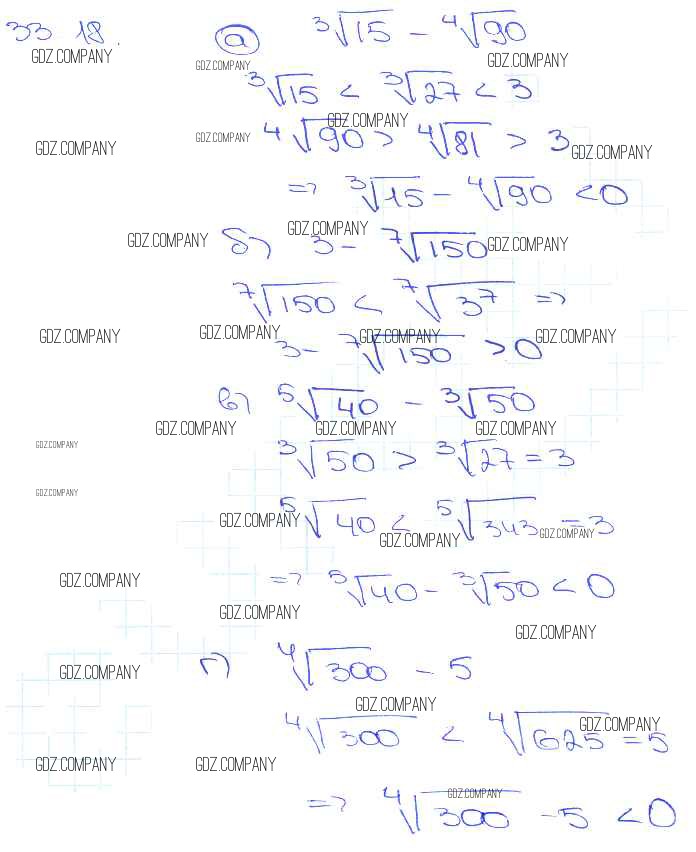 33 18. а) ∛15 - ∜90
GDZ.COMPANY GDZ.COMPANY GDZ.COMPANY
∛15 < ∛27 < 3
GDZ.COMPANY
GDZ.COMPANY GDZ.COMPANY ∜90 > ∜81 > 3 GDZ.COMPANY
=> ∛15 - ∜90 < 0
GDZ.COMPANY GDZ.COMPANY GDZ.COMPANY
б) 3 - ⁷√150
⁷√150 < ⁷√3⁷ =>
GDZ.COMPANY GDZ.COMPANY GDZ.COMPANY GDZ.COMPANY
3 - ⁷√150 > 0
в) ⁵√40 - ∛50
GDZ.COMPANY GDZ.COMPANY GDZ.COMPANY
GDZ.COMPANY
∛50 > ∛27 = 3
GDZ.COMPANY
⁵√40 < ⁵√343 = 3
GDZ.COMPANY GDZ.COMPANY GDZ.COMPANY
GDZ.COMPANY
=> ⁵√40 - ∛50 < 0
GDZ.COMPANY
GDZ.COMPANY
г) ∜300 - 5
GDZ.COMPANY
GDZ.COMPANY
∜300 < ∜625 = 5
GDZ.COMPANY
GDZ.COMPANY GDZ.COMPANY
=> ∜300 - 5 < 0
GDZ.COMPANY